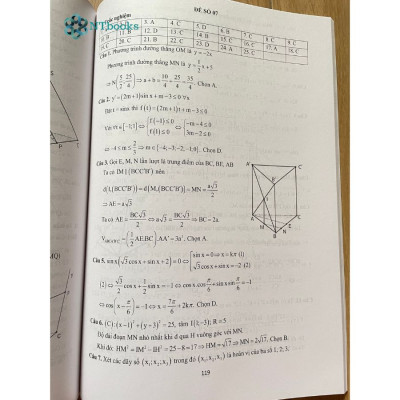 NTbooks
ĐỀ SỐ 07
nghiệm
3. A 4. C 5. D 6. B 7. C
11. B 12. D 13. C 14. B
20. C 21. B 22. B 23. D
Câu 1. Phương trình đường thẳng OM là y = -2x
Phương trình đường thẳng MN là y = 1/2 x + 5
⇒ N(5/2; 25/4) ⇒ a + b = 10/4 + 25/4 = 35/4. Chọn A.
Câu 2. y' = (2m+1)sin x + m - 3 ≤ 0 ∀x
Đặt t = sinx thì f(t) = (2m+1)t + m - 3 ≤ 0
Với ∀t ∈ [-1;1] ⇔ {f(-1) ≤ 0; f(1) ≤ 0 ⇔ {-m - 4 ≤ 0; 3m - 2 ≤ 0
⇔ -4 ≤ m ≤ 2/3 ⇒ m ∈ {-4;-3;-2;-1;0}. Chọn D.
Câu 3. Gọi E, M, N lần lượt là trung điểm của BC, BE, AB
Ta có IM ∥ (BCC'B') nên
d(I,(BCC'B')) = d(M,(BCC'B')) = MN = a√3/2
⇒ AE = a√3
Ta có AE = BC√3/2 ⇔ a√3 = BC√3/2 ⇒ BC = 2a
= (1/2 AE.BC).AA' = 3a³. Chọn A.
Câu 5. sinx(√3 cosx + sinx + 2) = 0 ⇔ [sinx = 0 ⇔ x = kπ (1); √3 cosx + sinx = -2 (2)
(2) ⇔ √3/2 cosx + 1/2 sinx = -1 ⇔ cosx.cos π/6 + sinx sin π/6 = -1
⇔ cos(x - π/6) = -1 ⇔ x = 7π/6 + k2π. Chọn D.
Câu 6. (C): (x-1)² + (y+3)² = 25, tâm I(1;-3); R = 5
Độ dài đoạn MN nhỏ nhất khi d qua H vuông góc với MN.
Khi đó: HM² = IM² - IH² = 25 - 8 = 17 ⇒ HM = √17 ⇒ MN = 2√17. Chọn B.
Câu 7. Xét các dãy số (x₁;x₂;x₃) trong đó (x₁,x₂,x₃) là hoán vị của ba số 1; 2; 3;
119
A' C' B' I A C E M B N
MQI